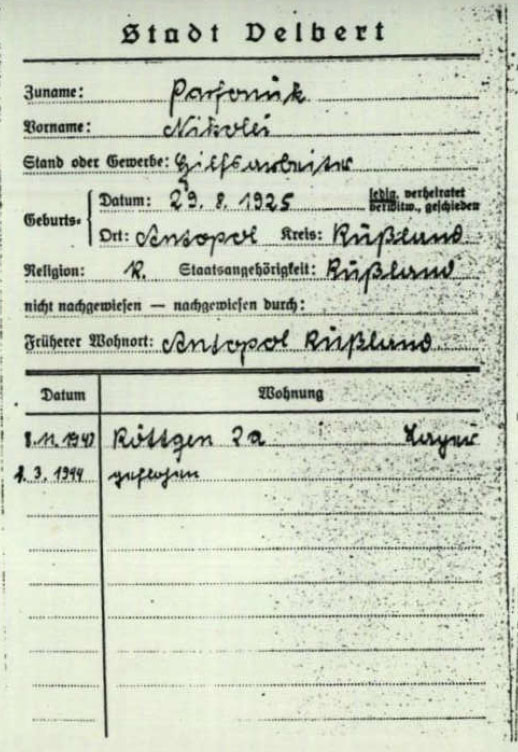 Stadt Velbert
Zuname: Parfonük
Vorname: Nikolei
Stand oder Gewerbe: Hilfsarbeiter
Geburts- Datum: 29. 8. 1925 ledig, verheiratet
verwitw., geschieden
Ort: Antopol Kreis: Rußland
Religion: R. Staatsangehörigkeit: Rußland
nicht nachgewiesen — nachgewiesen durch:
Früherer Wohnort: Antopol Rußland
Datum Wohnung
8.11.1943 Röttgen 2a Lager
1. 3. 1944 geflohen